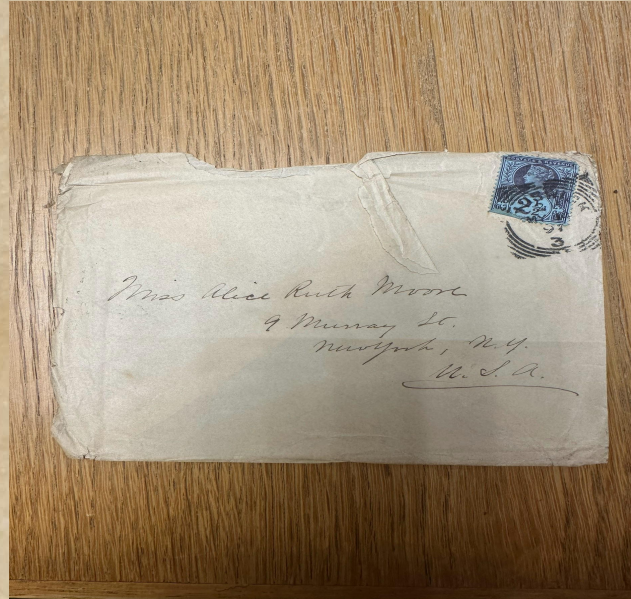 Miss Alice Ruth Moore
9 Murray St.
New York, N.Y.
U. S. A.
2½
3